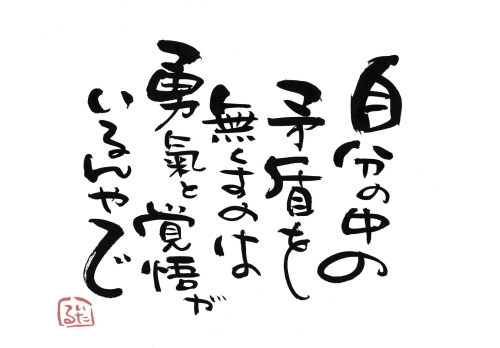 自分の中の
矛盾を
無くすのは
勇氣と覚悟が
いるんやで